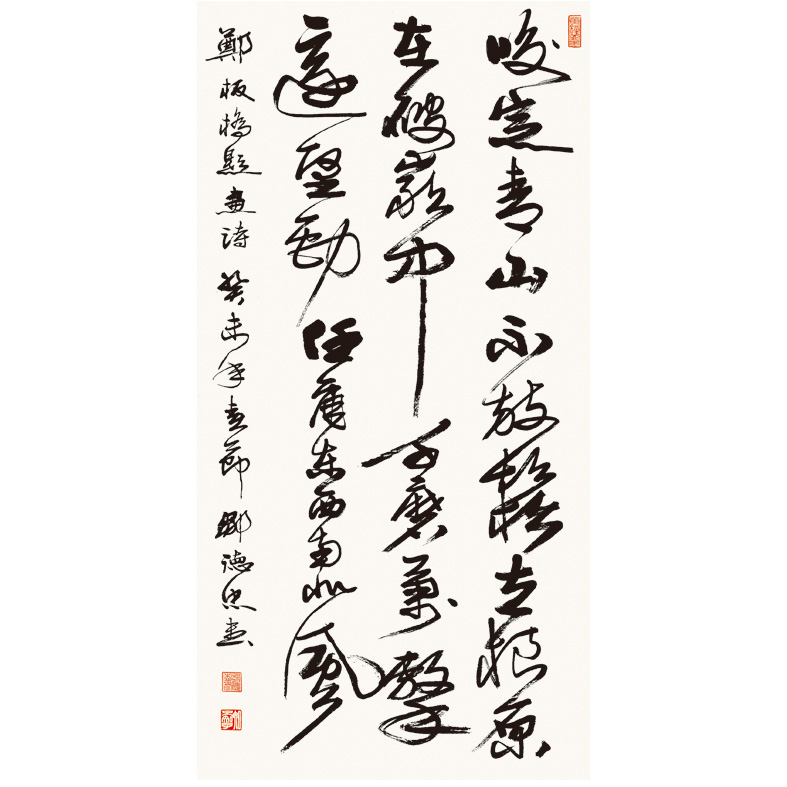 咬定青山不放鬆立根原
在破巖中千磨萬擊
還堅勁任爾东西南北風
鄭板橋題畫詩 癸未年春節 鄒德忠書